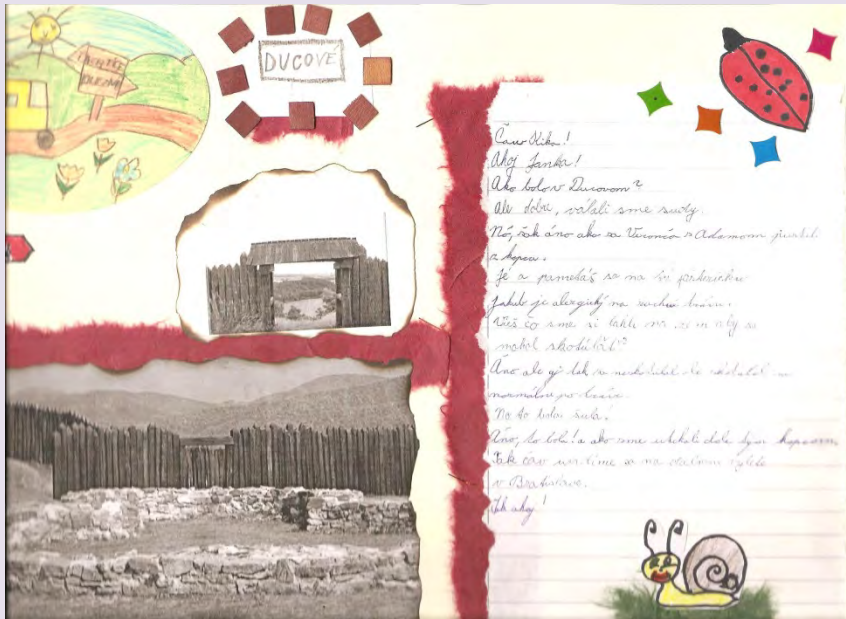 DUCOVÉ
Čauw Kika!
Ahoj Janka!
Ako bolo v Ducovom?
Ale dobre, váľali sme sudy.
Nó, však áno ako sa Veronča s Adamom
z kopca.
Jé a pamätáš sa na tú
Jakub je alergický na suchú trávu.
Vieš čo sme si ľahli na zem aby sa
mohol skotúľať?
Áno ale aj tak sa neskotúľal ale
normálne po tráve.
No to bola sranda!
Áno, to bola! a ako sme utekali dole tým kopcom
Tak čav uvidíme sa na ďalšom výlete
v Bratislave.
Tak ahoj!